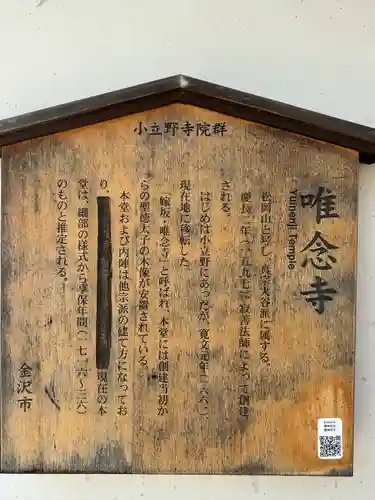 小立野寺院群
唯念寺
Yuinenji Temple
松岡山と号し、真宗大谷派に属する。
慶長二年（一五九七）寂善法師によって創建
される。
はじめは小立野にあったが、寛文元年（一六六一）
現在地に移転した。
「嫁坂・唯念寺」と呼ばれ、本堂には創建当初か
らの聖徳太子の木像が安置されている。
本堂および内陣は他宗派の建て方になってお
り、現在の本
堂は、細部の様式から享保年間（一七一六～三六）
のものと推定される。
金沢市